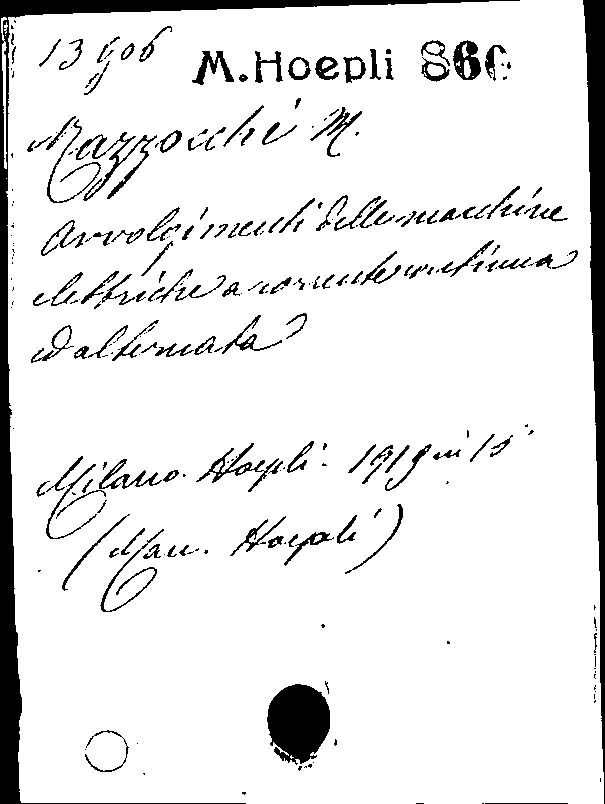 13906
M. Hoepli 860
Mazzocchi M.
Avvolgimenti delle macchine
elettriche a corrente continua
ed alternata
Milano. Hoepli. 1919 in 15°
(Man. Hoepli)